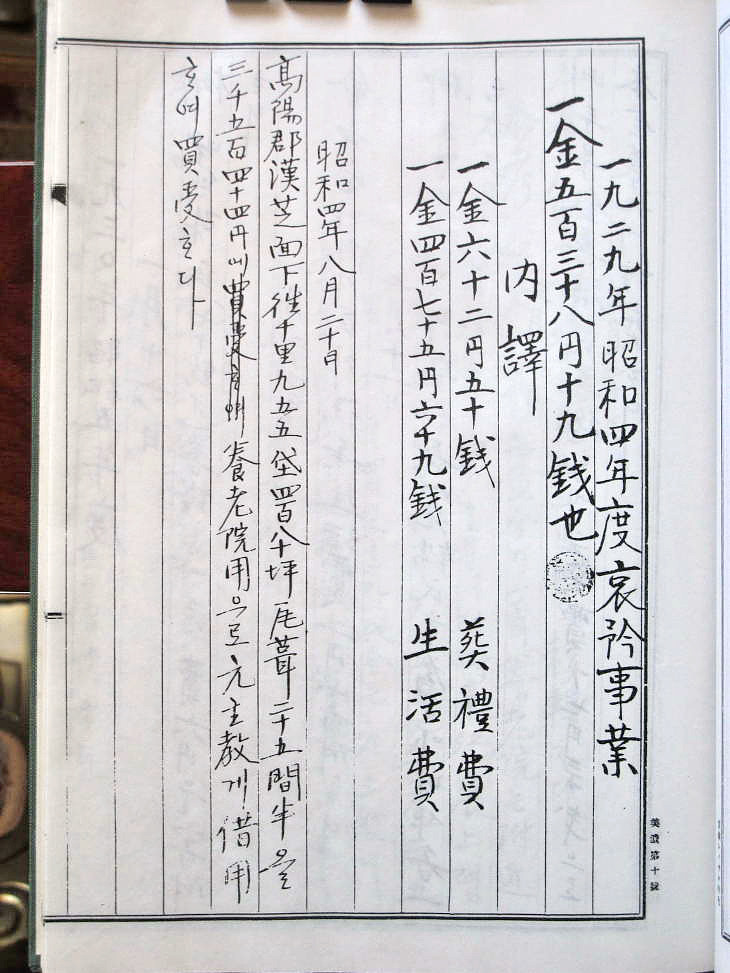 一九二九年 昭和四年度哀矜事業
一金五百三十八円十九銭也
內譯
一金六十二円五十銭 葬禮費
一金四百七十五円六十九銭 生活費
昭和四年八月二十日
高陽郡漢芝面下往十里九五五垈四百八十坪瓦葺二十五間半을
三千五百四十四円에 養老院用으로 元主敎게 借用
호여 買受호다
美濃第十號